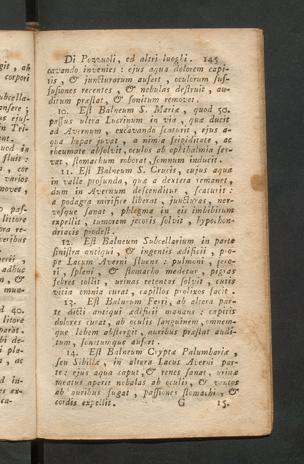 Di Pozzuoli, ed altri luoghi. 145
cavando inventes: ejus aqua dolorem capi-
tis, & juncturarum aufert, oculorum suf-
fusiones recentes, & nebulas destruit, au-
ditum præstat, & sonitum removet.
10. Est Balneum S. Mariæ, quod 50.
passus ultra Lucrinum in via, qua ducit
ad Avernum, excavando scaturit, ejus a-
qua hepar juvat, a nimia frigiditate, ac
rheumate absolvit, oculos ab ophthalmia ser-
vat, stomachum roborat, somnum inducit.
11. Est Balneum S. Crucis, cujus aqua
in valle profunda, quæ a dextera remanet,
dum in Avernum descenditur, scaturit:
a podagra mirifice liberat, juncturas, ner-
vosque sanat, phlegma in eis imbibitum
expellit, tumorem jecoris solvit, hypochon-
driacis prodest.
12. Est Balneum Subcellarium in parte
sinistra antiqui, & ingentis ædificii, pro-
pe Lacum Averni fluens: pulmoni, jeco-
ri, spleni, & stomacho medetur, pigras
febres tollit, urinas retentas solvit, cutis
vitia omnia curat, capillos prolixos facit.
13. Est Balneum Ferri, ab altera par-
te dicti antiqui ædificii manans: capitis
dolores curat, ab oculis sanguinem, omnem-
que labem abstergit, auribus præstat audi-
tum, sonitumque aufert.
14. Est Balneum Cryptæ Palumbariæ
seu Sibillæ, in altera Lacus Averni par-
te: ejus aqua caput, & renes sanat, urinæ
meatus aperit nebulas ab oculis, & ventos
ab auribus fugat, passiones stomachi, &
cordis expellit. G 15.